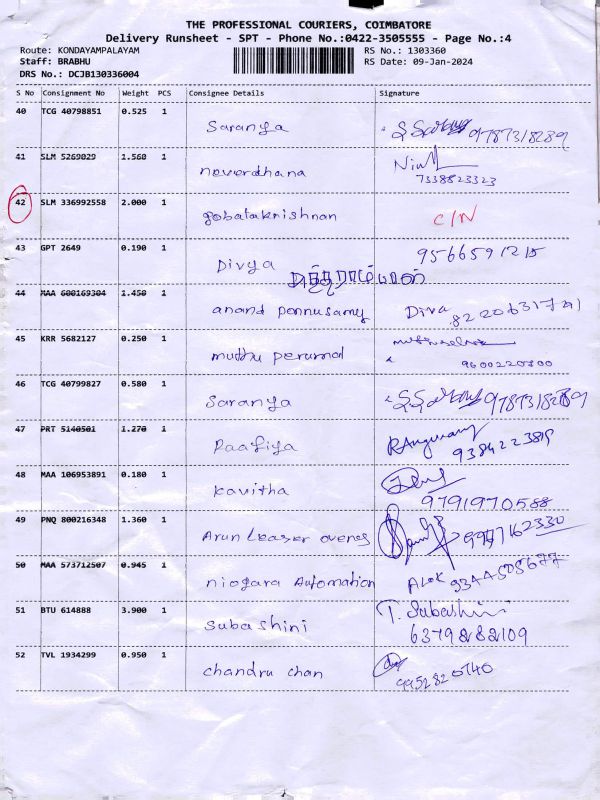 THE PROFESSIONAL COURIERS, COIMBATORE
Delivery Runsheet - SPT - Phone No.:0422-3505555 - Page No.:4
Route: KONDAYAMPALAYAM RS No.: 1303360
Staff: BRABHU RS Date: 09-Jan-2024
DRS No.: DCJB130336004
S No Consignment No Weight PCS Consignee Details Signature
40 TCG 40798851 0.525 1
Saranya 9787318289
41 SLM 5269029 1.560 1
neverdhana
7338823323
42 SLM 336992558 2.000 1
gobalakrishnan C/N
43 GPT 2649 0.190 1
Divya 9566591215
44 MAA 600169304 1.450 1
anand ponnusamy Diva
8220631721
45 KRR 5682127 0.250 1
muthu perumal
9600220700
46 TCG 40799827 0.580 1
Saranya 9787318289
47 PRT 5140501 1.270 1
Raafiya
9384223819
48 MAA 106953891 0.180 1
Kavitha
9791970588
49 PNQ 800216348 1.360 1
Arun
50 MAA 573712507 0.945 1
niagara Automation ALOK 9344505677
51 BTU 614888 3.900 1
Subashini T. Subashini
6379282109
52 TVL 1934299 0.950 1
chandru chan
9952820740